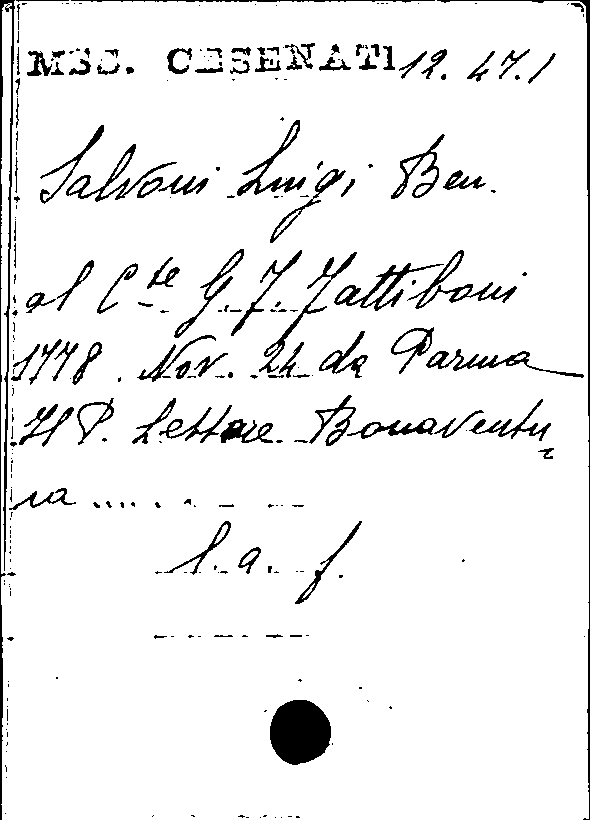 MSS. CESENATI 12. 47.1
Salvoni Luigi Ben.
al Cte G. F. Fattiboni
1778. Nov. 24 da Parma
Il P. Lettore Bonaventu
ra .....
l. a. f.